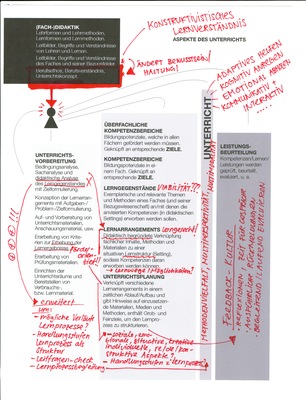 (FACH-)DIDAKTIK
Lehrformen und Lernformen.
Lehrmethoden und Lernmethoden.
Leitbilder, Begriffe und Verständnisse
von Lehren und Lernen.
Leitbilder, Begriffe und Verständnisse
des Faches und seiner Bezugsfelder.
Berufsethos, Berufsverständnis,
Unterrichtskonzept.
KONSTRUKTIVISTISCHES
LERNVERSTÄNDNIS
ASPEKTE DES UNTERRICHTS
ÄNDERT BEWUSSTSEIN/
HALTUNG!
ADAPTIVES HELFEN
KOGNITIV ANREGEN
EMOTIONAL
KOMMUNIKATIV &
INTERAKTIV
UNTERRICHTS-
VORBEREITUNG
Bedingungsanalyse,
Sachanalyse und
didaktische Analyse
des Lerngegenstandes
mit Zielformulierung.
Konzeption der Lernarran-
gements mit Aufgaben-/
Problem-/Zielformulierung.
Auf- und Vorbereitung von
Unterrichtsmaterialien,
Anschauungsmaterial, usw.
Erarbeitung von Krite-
rien zur Erhebung der
Lernergebnisse.
Erarbeitung von
Prüfungsmaterialien.
Einrichten der
Unterrichtsräume und
Bereitstellen von
Verbrauchs-,
bzw. Lernmaterial.
Förder-
orien-
tiert!
erweitert
um:
- mögliche Verläufe
Lernprozesse?
- Handlungsstufen
Lernprozess als
Struktur
- Leitfragen-check
- Lernprozessbegleitung
ÜBERFACHLICHE
KOMPETENZBEREICHE
Bildungsprozesse, welche in allen
Fächern gefördert werden müssen.
Geknüpft an entsprechende ZIELE.
KOMPETENZBEREICHE
Bildungsprozesse in ei-
nem Fach. Geknüpft an
entsprechende ZIELE.
VIABILITÄT??
LERNGEGENSTÄNDE
Exemplarische und relevante Themen
und Methoden eines Faches (und seiner
Bezugswissenschaft) anhand denen die
anvisierten Kompetenzen (in didaktischen
Settings) erworben werden sollen.
LERNARRANGEMENTS
lerngerecht!
Didaktisch begründete Verknüpfung
fachlicher Inhalte, Methoden und
Materialien zu einer
situativen Lernstruktur (Setting),
sodass Kompetenzen daran
erworben werden können.
→ Lernwege & möglichkeiten?
UNTERRICHTSPLANUNG
Verknüpft verschiedene
Lernarrangements in einem
zeitlichen Ablauf/Aufbau und
gibt Hinweise auf einzusetzen-
de Materialien, Medien und
Methoden, enthält Grob- und
Feinziele, um den Lernpro-
zess zu strukturieren.
→ soziale, emo-
tionale, situative, kreative
individuelle, re/de/kon-
struktive Aspekte?
- Handlungsstufen & Lernprozess
UNTERRICHT
METHODENVIELFALT, MULTIPERSPEKTIVITÄT
LEISTUNGS-
BEURTEILUNG
Kompetenzen/Lernen/
Leistungen werden
geprüft, beurteilt,
evaluiert, u. a.